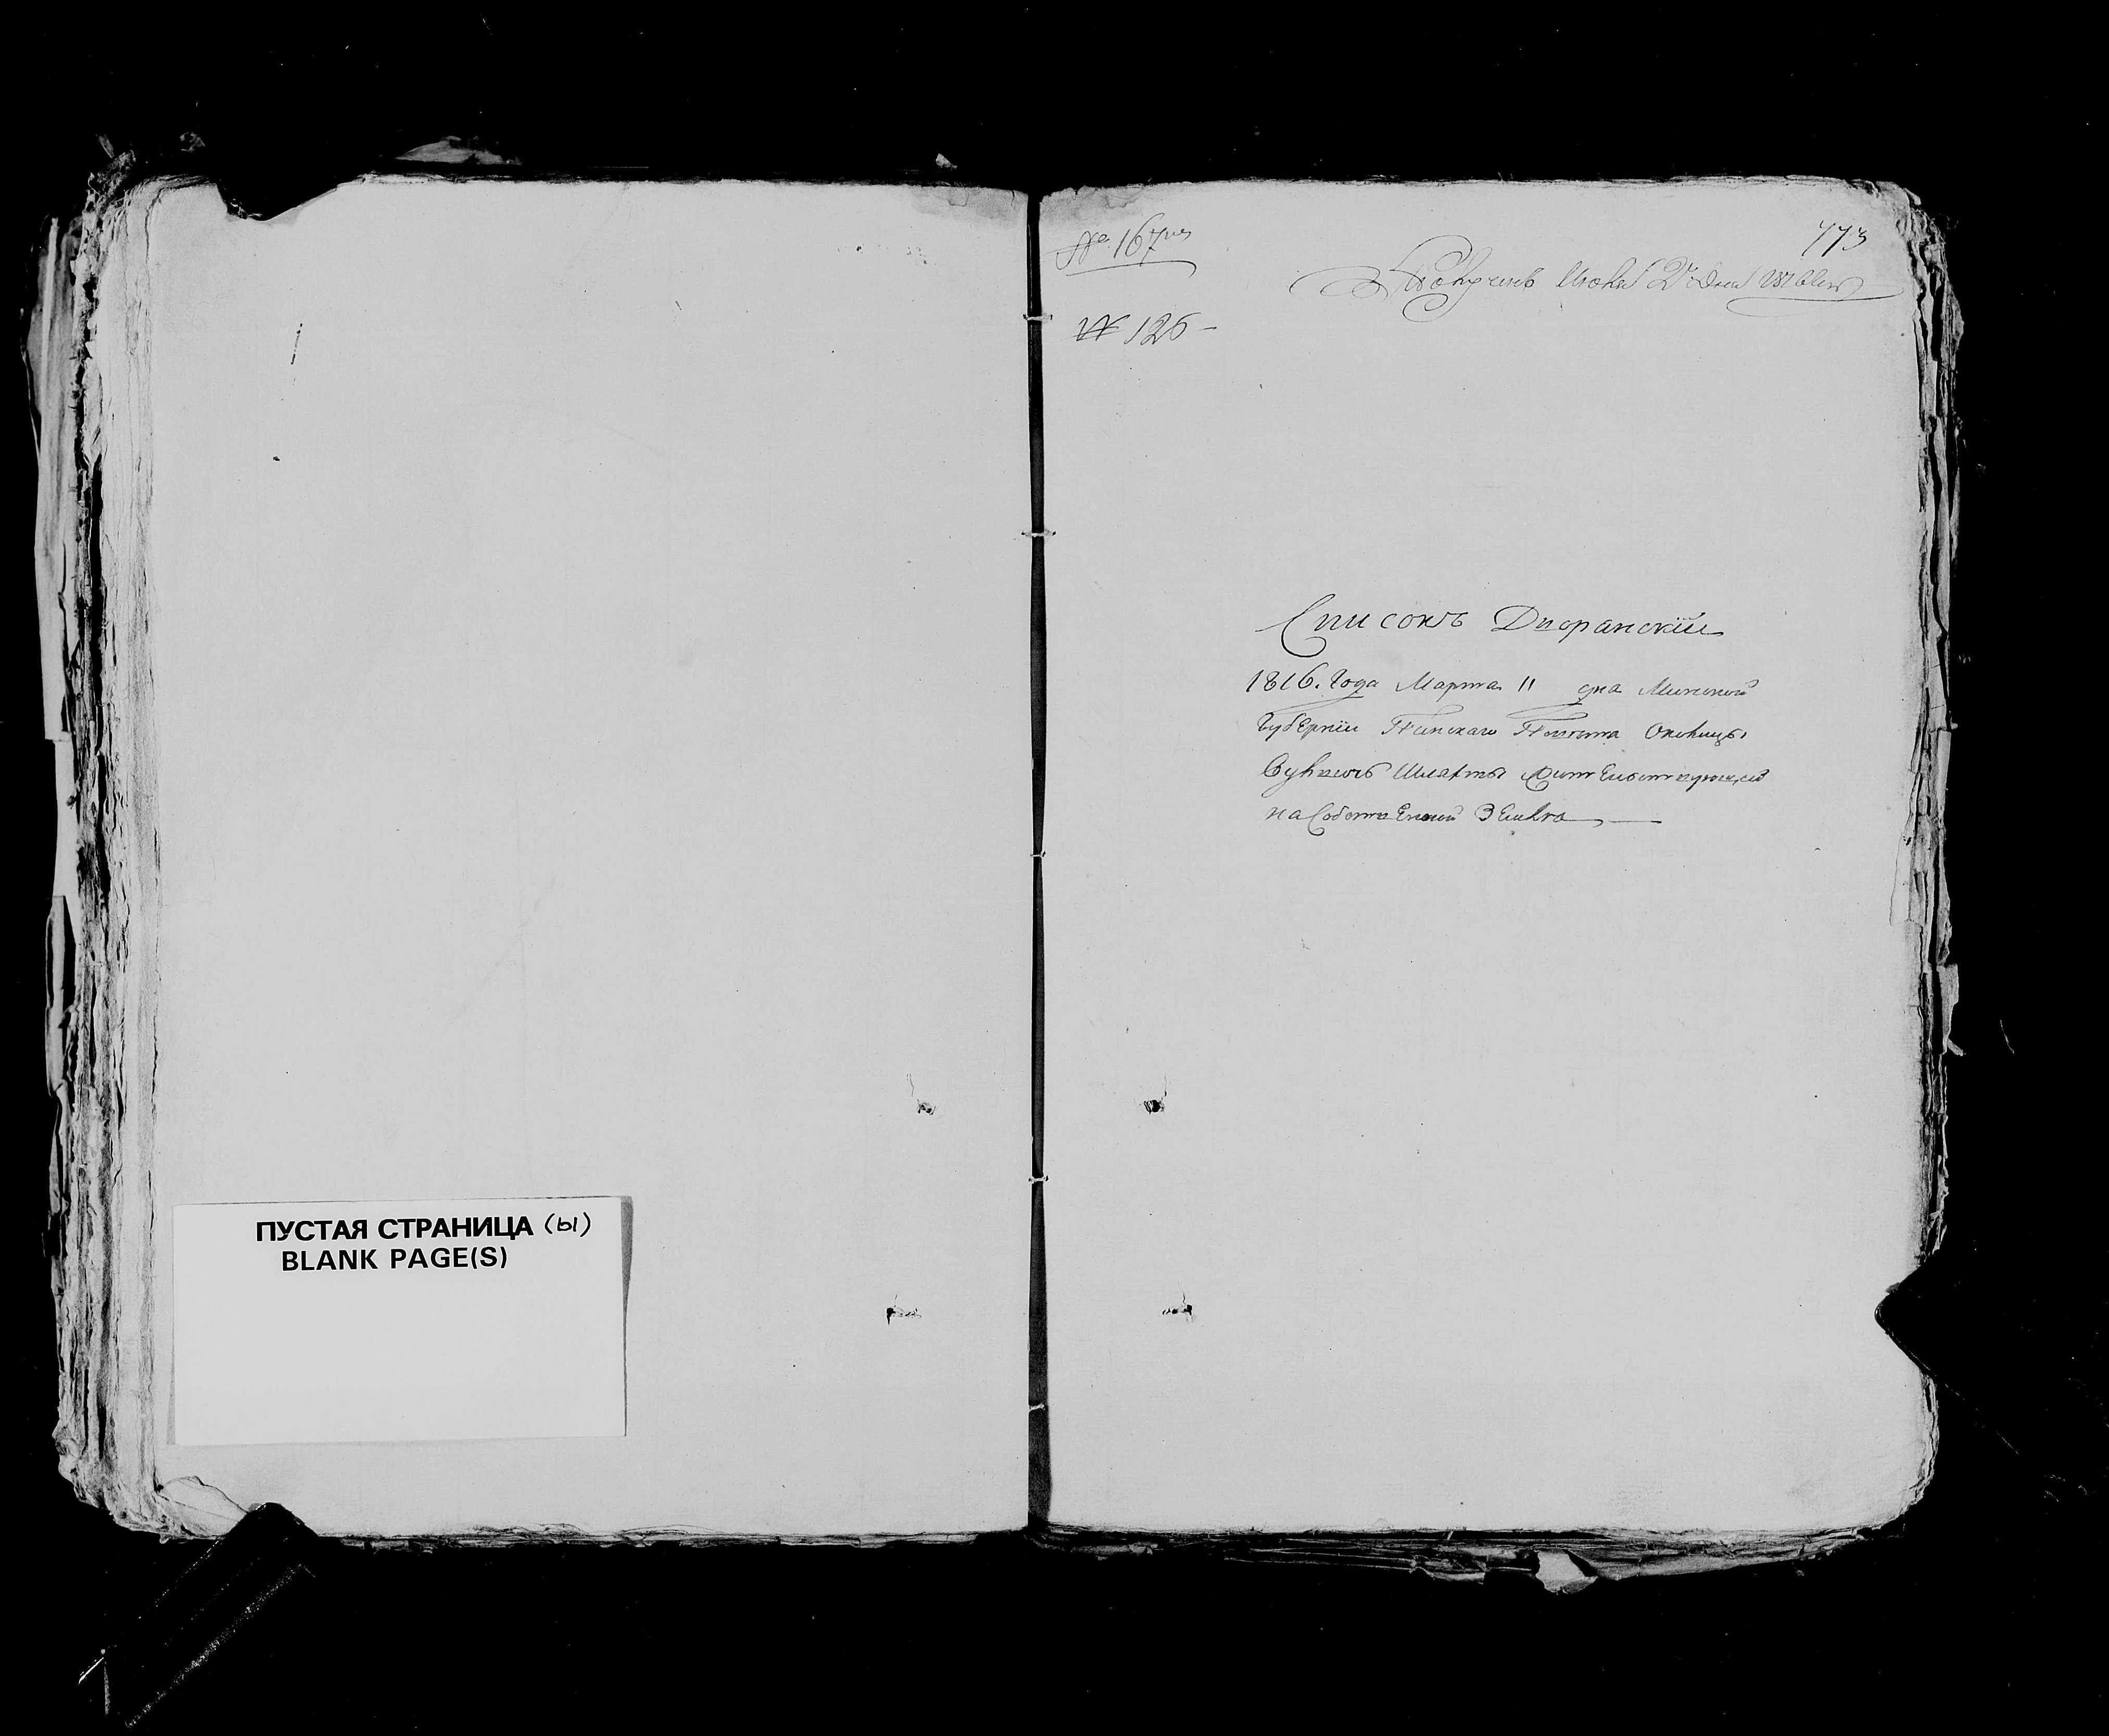 ПУСТАЯ СТРАНИЦА (ы)
BLANK PAGE(S)
№ 167
773
№ 126 -
Списокъ Дворанскій
1816. Года Марта 11 дна Минской
Губерніи Пинскаго Повѣта Околицы
Шляхты жительствующей
на Собственной Землѣ